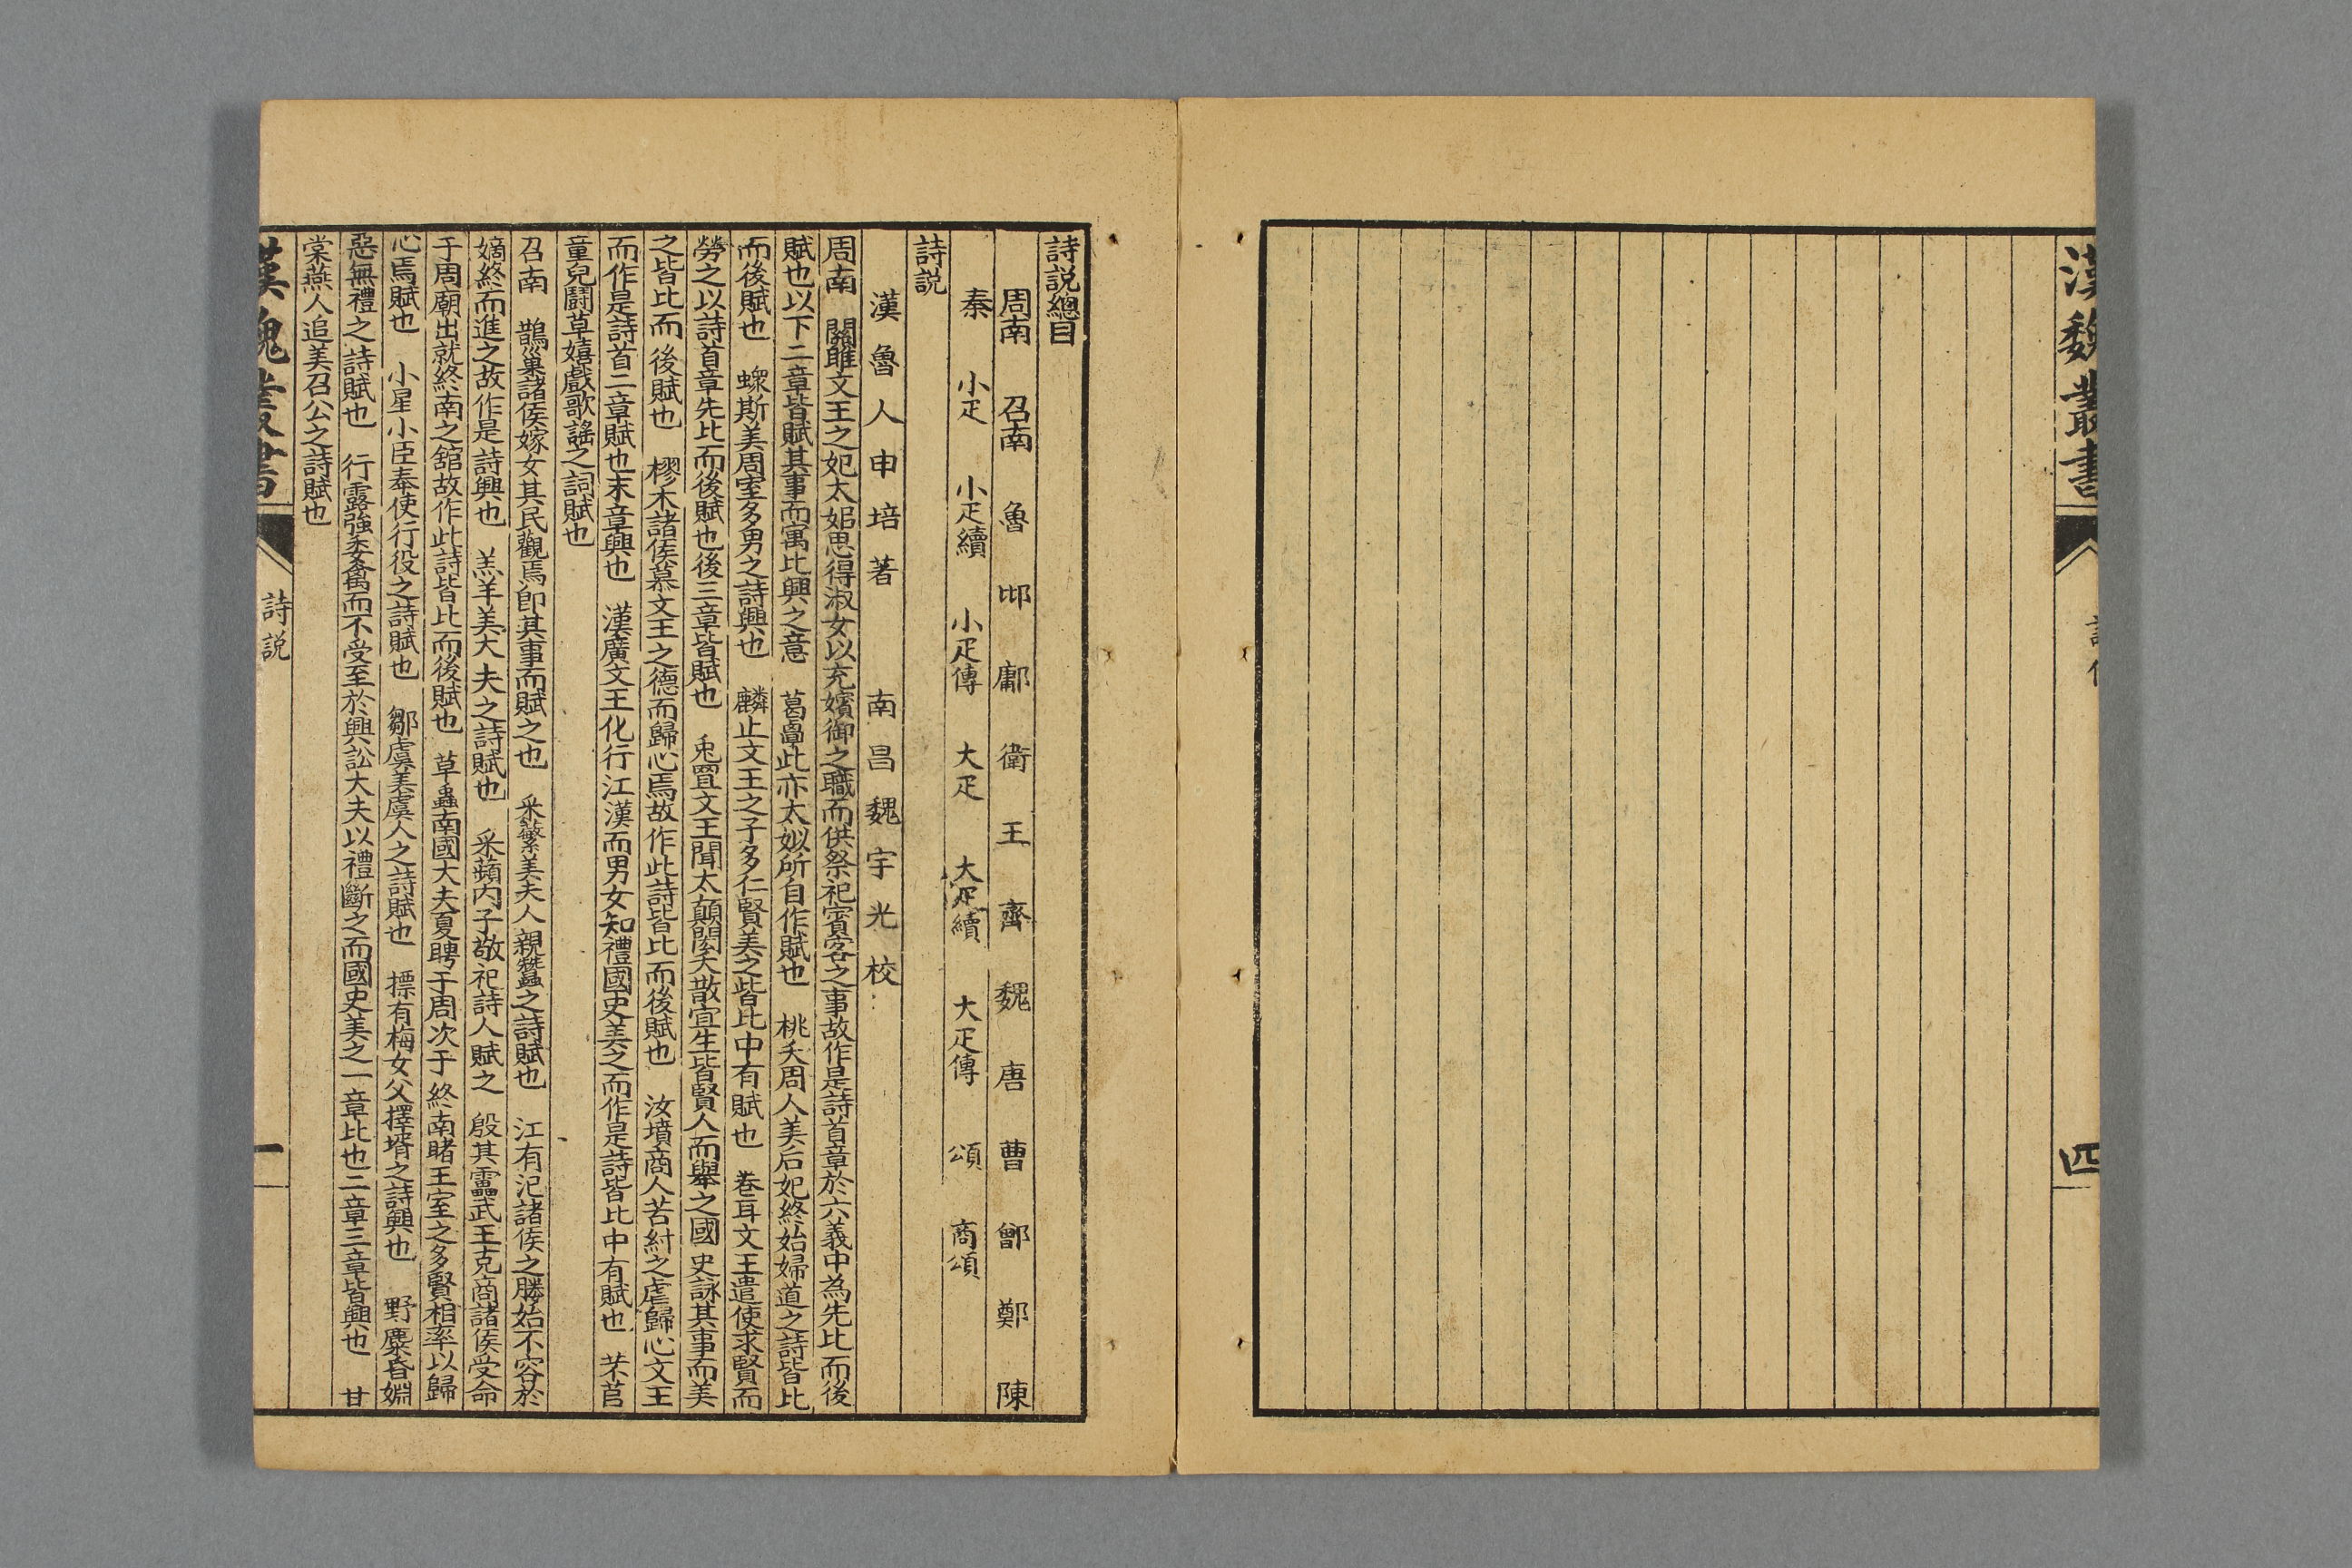 漢魏叢書
四
詩說總目
周南 召南 魯 邶 鄘 衛 王 齊 魏 唐 曹 鄶 鄭 陳
秦 小疋 小疋續 小疋傳 大疋 大疋續 大疋傳 頌 商頌
詩説
漢魯人申培著 南昌魏宇光校
周南 關雎文王之妃太姒思得淑女以充嬪御之職而供祭祀賓客之事故作是詩首章於六義中為先比而後
賦也以下二章皆賦其事而寓比興之意 葛蕈此亦太姒所自作賦也 桃夭周人美后妃終始婦道之詩皆比
而後賦也 螽斯美周室多男之詩興也 麟止文王之子多仁賢美之皆比中有賦也 卷耳文王遣使求賢而
勞之以詩首章先比而後賦也後三章皆賦也 兎罝文王聞太顛閎夭散宜生皆賢人而舉之國史詠其事而美
之皆比而後賦也 樛木諸侯慕文王之德而歸心焉故作此詩皆比而後賦也 汝墳商人苦紂之虐歸心文王
而作是詩首二章賦也末章興也 漢廣文王化行江漢而男女知禮國史美之而作是詩皆比中有賦也 芣苢
童兒鬪草嬉戲歌謠之詞賦也
召南 鵲巢諸侯嫁女其民觀焉卽其事而賦之也 采蘩美夫人親蠶之詩賦也 江有汜諸侯之媵始不容於
嫡終而進之故作是詩興也 羔羊美大夫之詩賦也 采蘋內子敬祀詩人賦之 殷其靁武王克商諸侯受命
于周廟出就終南之舘故作此詩皆比而後賦也 草蟲南國大夫夏聘于周次于終南睹王室之多賢相率以歸
心焉賦也 小星小臣奉使行役之詩賦也 鄒虞美虞人之詩賦也 摽有梅女父擇壻之詩興也 野麕昏婣
惡無禮之詩賦也 行露強委禽而不受至於興訟大夫以禮斷之而國史美之一章比也二章三章皆興也 甘
棠燕人追美召公之詩賦也
漢魏叢書
詩説
一